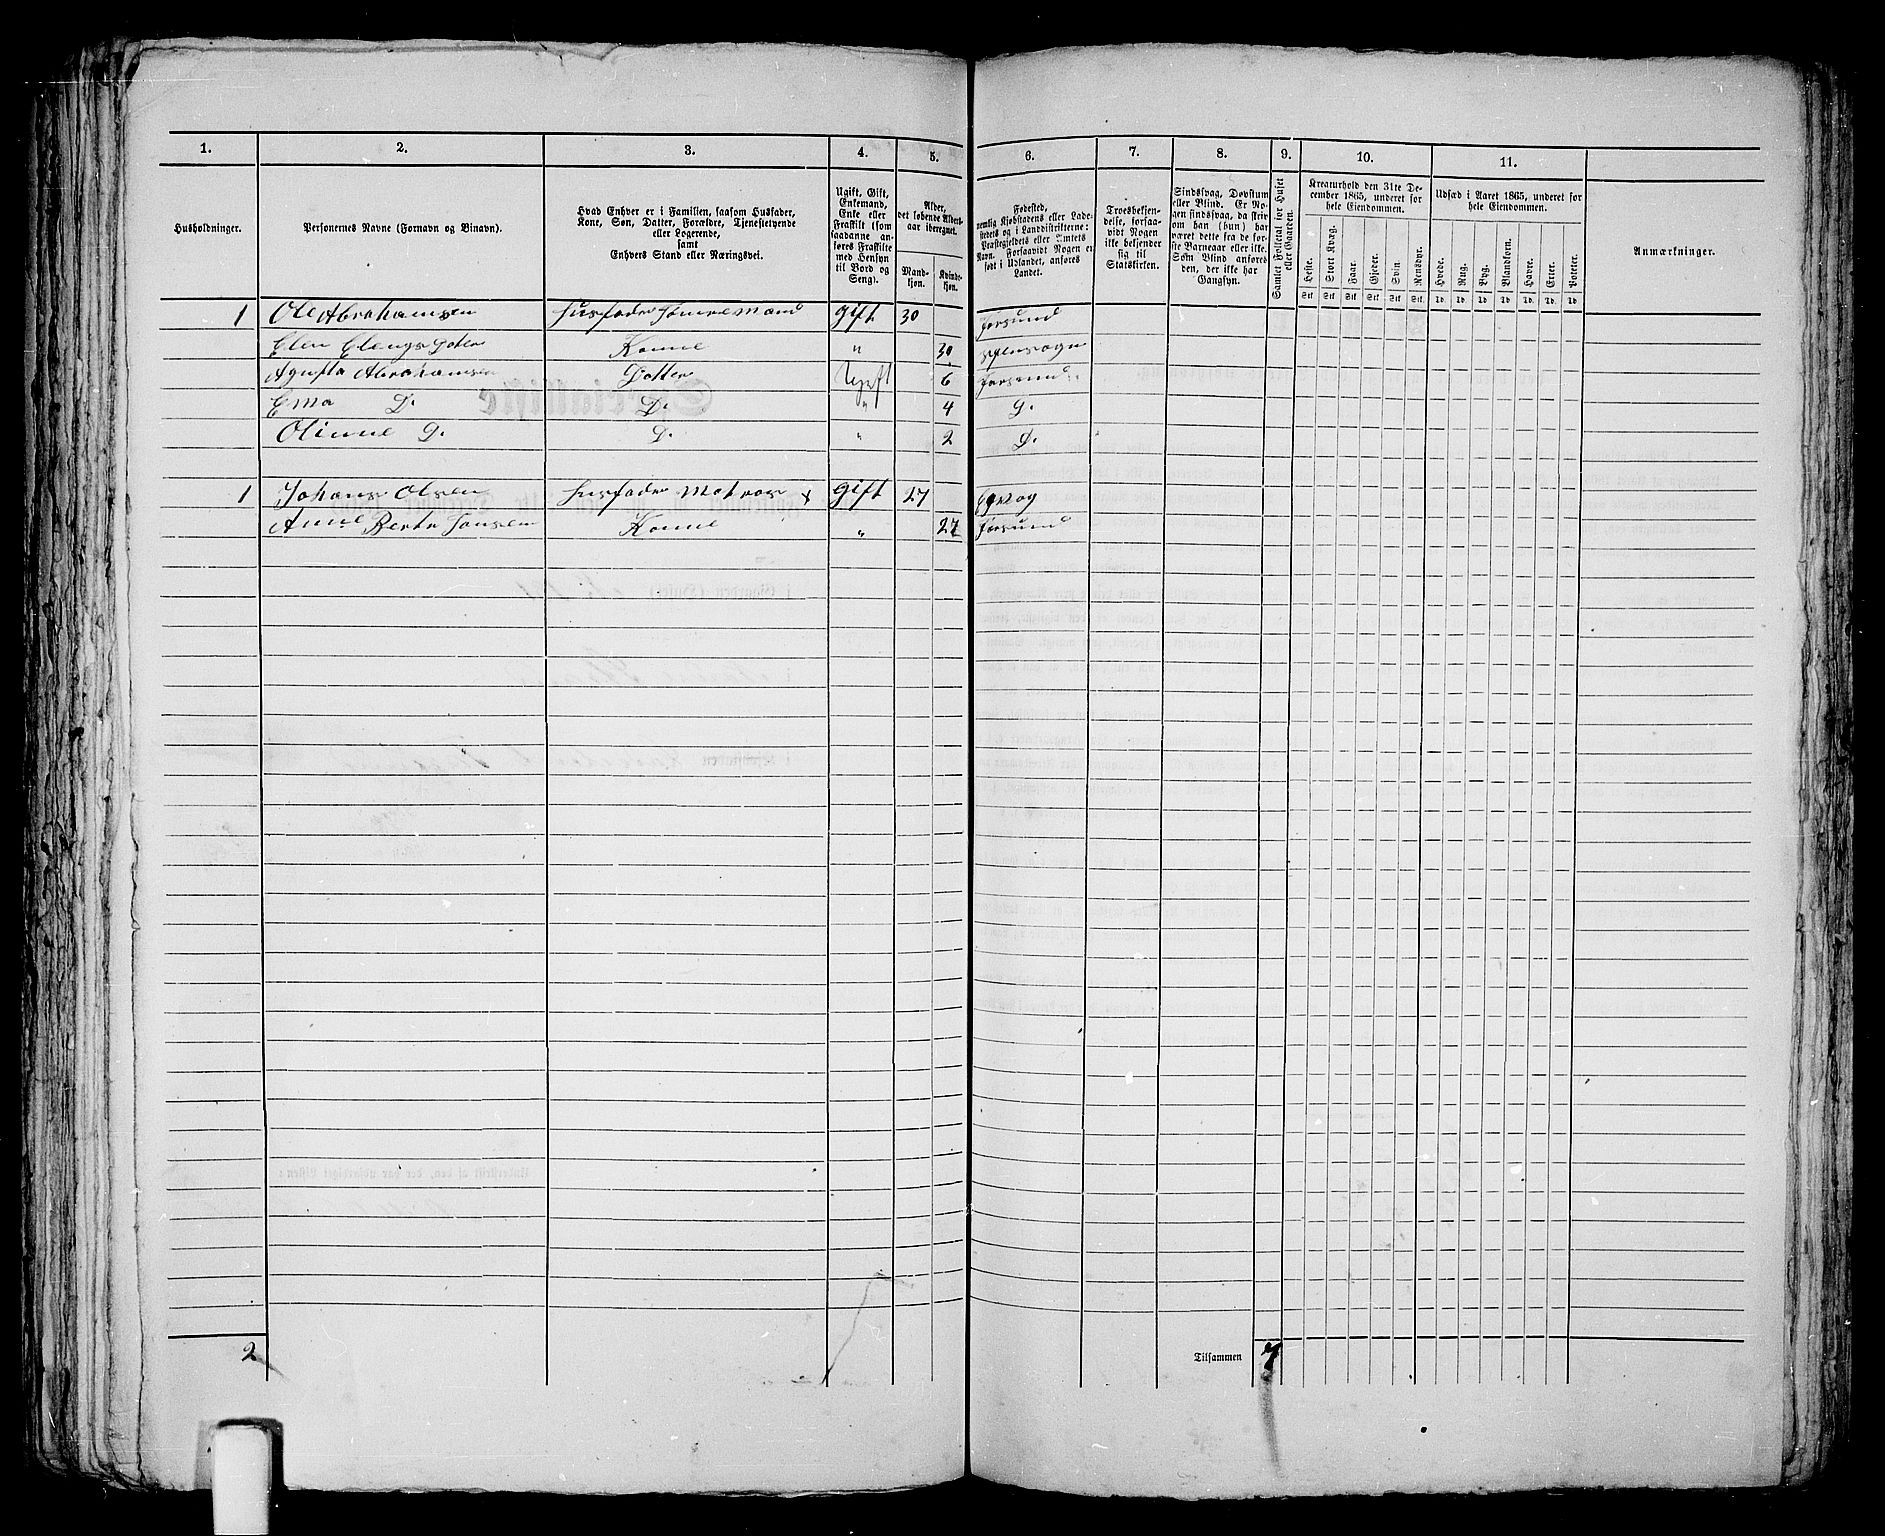 1. 2. 3. 4. 5. 6. 7. 8. 9. 10. 11.
Husholdninger.
Personernes Navne (Fornavn og Binavn).
Hvad Enhver er i Familien, saasom Husfader,
Kone, Søn, Datter, Forældre, Tjenestetyende
eller Logerende,
samt
Enhvers Stand eller Næringsvei.
Ugift, Gift,
Enkemand,
Enke eller
Fraskilt (som
saadanne an-
føres Fraskilte
med Hensyn
til Bord og
Seng).
Alder,
det løbende Alders-
aar iberegnet.
Mand-
kjøn.
Kvinde-
kjøn.
Fødested,
nemlig Kjøbstadens eller Lade-
stedets og i Landdistrikterne:
Præstegjeldets eller Amtets
Navn. Forsaavidt Nogen er
født i Udlandet, anføres
Landet.
Troesbekjen-
delse, forsaa-
vidt Nogen
ikke bekjender
sig til
Statskirken.
Sindssvag, Døvstum
eller Blind. Er No-
gen sindssvag, da skriv
om han (hun) har
været dette fra de før-
ste Barneaar eller ikke.
Som Blind anføres
den, der ikke har
Gangsyn.
Samlet Folketal for Huset
eller Gaarden.
Kreaturhold den 31te De-
cember 1865, underet for
hele Eiendommen.
Heste. Stort Kvæg. Faar. Gjeder. Svin. Rensdyr.
Stk Stk Stk Stk Stk Stk
Udsæd i Aaret 1865, underet for
hele Eiendommen.
Hvede. Rug. Byg. Blandkorn. Havre. Erter. Poteter.
Td. Td. Td. Td. Td. Td. Td.
Anmærkninger.
1 Ole Abrahamsen Husfader Tømremand gift 30 Førsund
Elen Kone " 30
Abrahamsen Datter Ugift 6 Førsund
Ema D. D. " 4 D.
Oline D. D. " 2 D.
1 Johans Olsen Husfader Matros gift 27
Anne Berte Jonsen Kone " 27 Førsund
2 Tilsammen 7